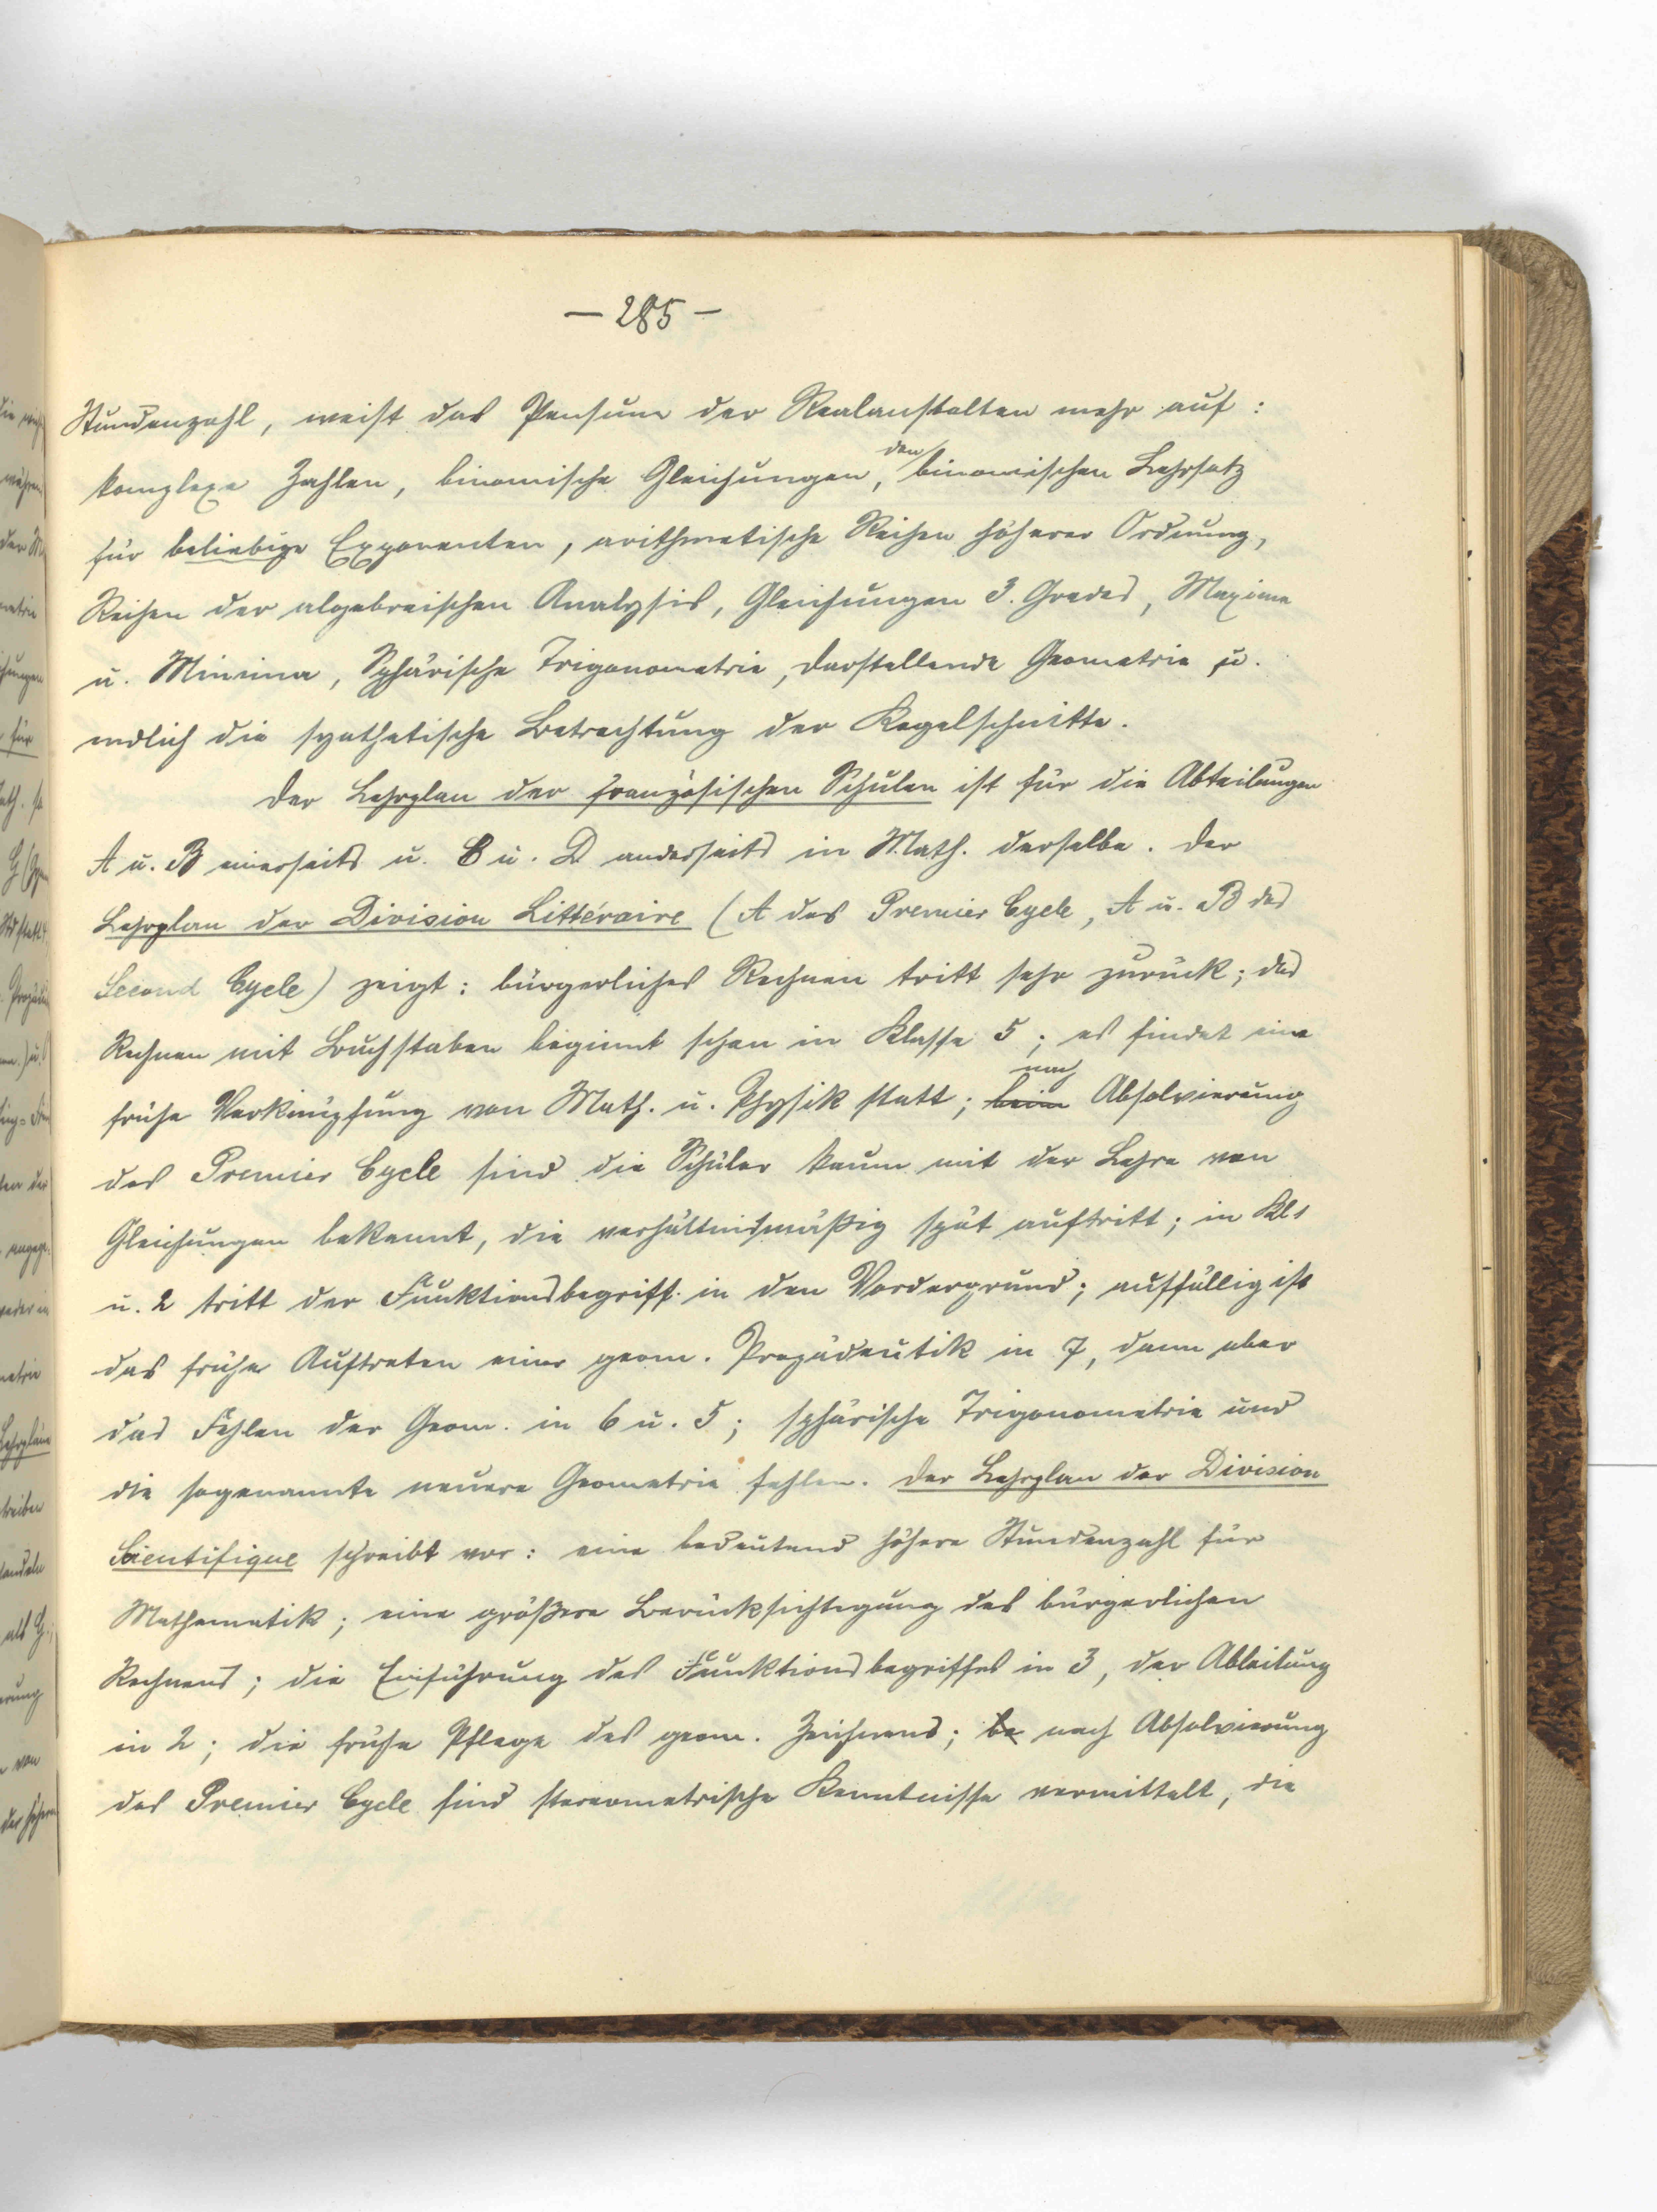 — 285 —
Stundenzahl, weist das Pensum der Realanstalten mehr auf:
komplexe Zahlen, binomische Gleichungen, den binomischen Lehrsatz
für beliebige Exponenten, arithmetische Reihen höherer Ordnung,
Reihen der algebraischen Analysis, Gleichungen 3. Grades, Maxima
u. Minima, Sphärische Trigonometrie, darstellende Geometrie u.
endlich die synthetische Betrachtung der Kegelschnitte.
Der Lehrplan der französischen Schulen ist für die Abteilungen
A u. B einerseits u. C u. D anderseits in Math. derselbe. Der
Lehrplan der Division Littéraire (A des Premier Cycle, A u. B des
Second Cycle) zeigt: bürgerliches Rechnen tritt sehr zurück; das
Rechnen mit Buchstaben beginnt schon in Klasse 5; es findet eine
frühe Verknüpfung von Math. u. Physik statt; beim nach Absolvierung
des Premier Cycle sind die Schüler kaum mit der Lehre von
Gleichungen bekannt, die verhältnismäßig spät auftritt; in Kl. 1
u. 2 tritt der Funktionsbegriff in den Vordergrund; auffällig ist
das frühe Auftreten einer geom. Propädeutik in 7, dann aber
das Fehlen der Geom. in 6 u. 5; sphärische Trigonometrie und
die sogenannte neuere Geometrie fehlen. Der Lehrplan der Division
Scientifique schreibt vor: eine bedeutend höhere Stundenzahl für
Mathematik; eine größere Berücksichtigung des bürgerlichen
Rechnens; die Einführung des Funktionsbegriffes in 3, der Ableitung
in 2; die frühe Pflege des geom. Zeichnens; be nach Absolvierung
des Premier Cycle sind stereometrische Kenntnisse vermittelt, die